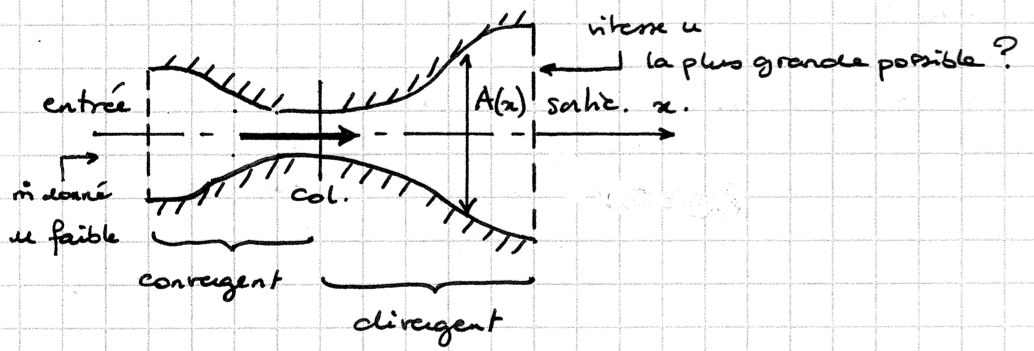 vitesse u
la plus grande possible ?
entrée
A(x)
sortie.
x.
ṁ donné
u faible
col.
convergent
divergent